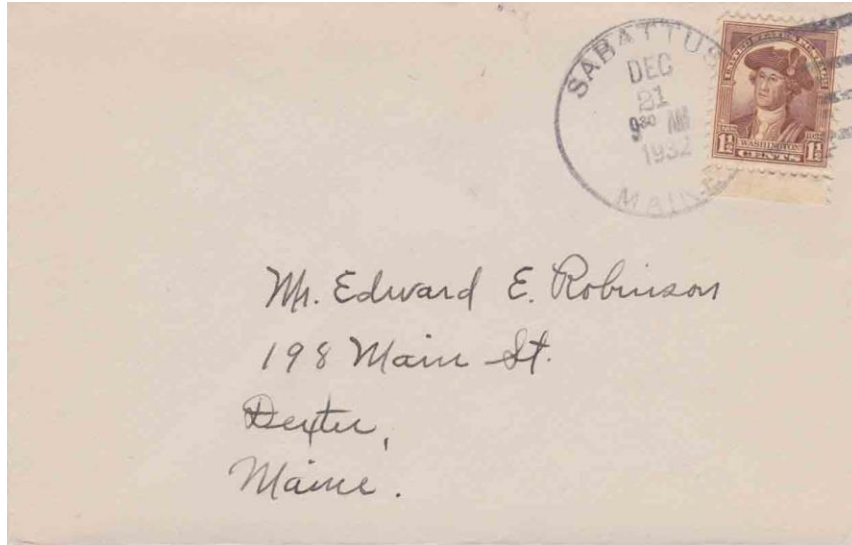 SABATTUS
DEC
21
9³⁰ AM
1932
MAINE
UNITED STATES POSTAGE
WASHINGTON
1½ 1½
CENTS
Mr. Edward E. Robinson
198 Main St.
Dexter,
Maine.